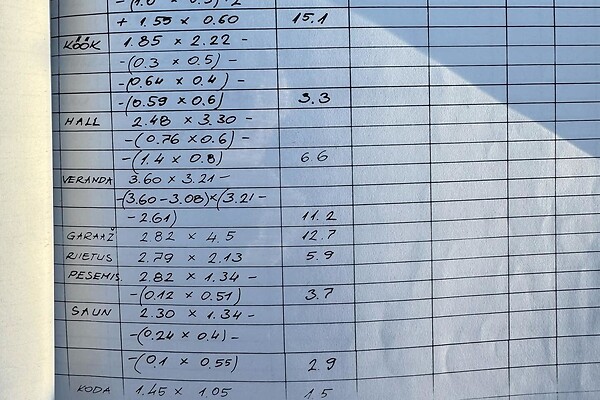 -(1.0 × 0.5)+2
+ 1.55 × 0.60 15.1
KÖÖK 1.85 × 2.22 -
-(0.3 × 0.5) -
-(0.64 × 0.4) -
-(0.59 × 0.6) 3.3
HALL 2.48 × 3.30 -
-(0.76 × 0.6) -
-(1.4 × 0.8) 6.6
VERANDA 3.60 × 3.21 -
-(3.60-3.08)×(3.21 -
-2.61) 11.2
GARAAŽ 2.82 × 4.5 12.7
RIIETUS 2.79 × 2.13 5.9
PESEMIS. 2.82 × 1.34 -
-(0.12 × 0.51) 3.7
SAUN 2.30 × 1.34 -
-(0.24 × 0.4) -
-(0.1 × 0.55) 2.9
KODA 1.45 × 1.05 1.5